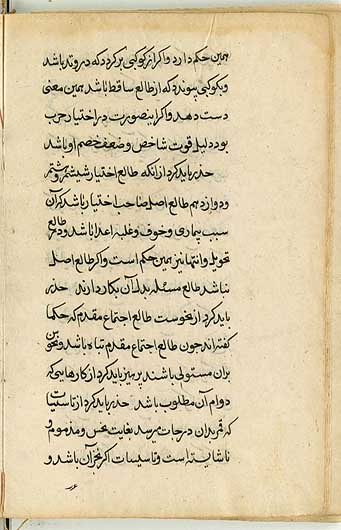 همین حکم دارد واکر از کوکبی برکردد که در وتد باشد
وبکوکبی پیوندد که از طالع ساقط باشد همین معنی
دست دهد واکر اینصورت در اختیار حرب
بود دلیل قوت شاخص وضعف خصم او باشد
حذر باید کرد از انکه طالع اختیار ششم وهشتم
ودوازدهم طالع اصل صاحب اختیار باشد که آن
سبب بیماری وخوف وغلبه اعدا باشد ودر طالع
تحویل وانتها نیز همین حکم است واکر طالع اصل
نباشد طالع مسئله بدل آن بکار دارند حذر
باید کرد از نحوست طالع اجتماع مقدم که حکما
کفته اند چون طالع اجتماع مقدم تباه باشد ونحوس
بران مستولی باشند پرهیز باید کرد از کارهایی که
دوام آن مطلوب باشد حذر باید کرد از تاسیسات
که قمر بدان درجات مرسد بغایت نحس ومذموم و
ناشایسته است وتاسیسات اکرچه آن باشد و